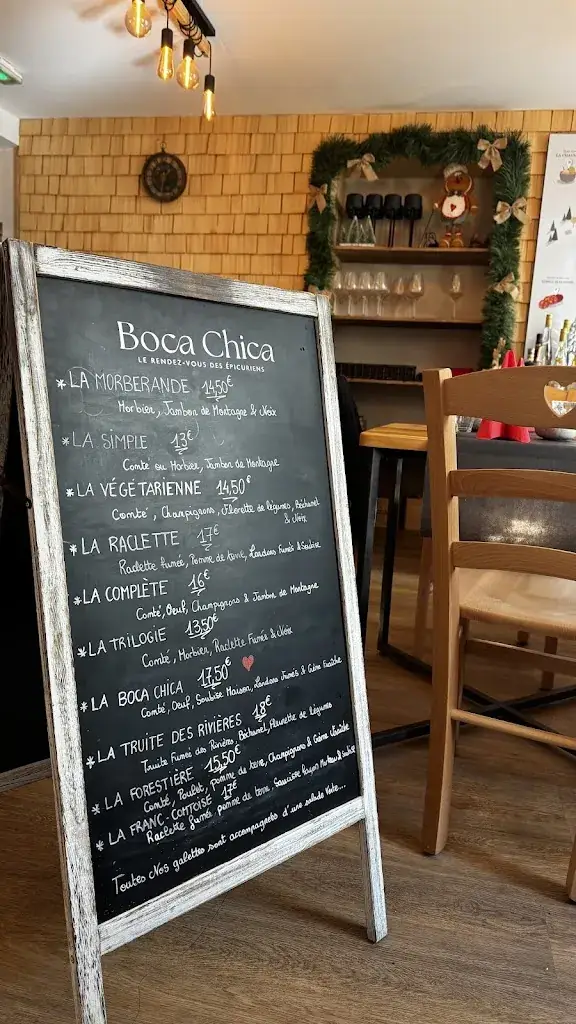 Boca Chica
LE RENDEZ-VOUS DES ÉPICURIENS
* LA MORBERANDE 14,50€
Morbier, Jambon de Montagne & Noix
* LA SIMPLE 13€
Comté ou Morbier, Jambon de Montagne
* LA VÉGÉTARIENNE 14,50€
Comté, Champignons, Florette de légumes, Béchamel
& Noix
* LA RACLETTE 17€
Raclette fumée, Pomme de terre, Lardons Fumés & Soubise
* LA COMPLÈTE 16€
Comté, Oeuf, Champignons & Jambon de Montagne
* LA TRILOGIE 13,50€
Comté, Morbier, Raclette Fumée & Noix
* LA BOCA CHICA 17,50€
Comté, Oeuf, Soubise Maison, Lardons Fumés & Crème Fraîche
* LA TRUITE DES RIVIÈRES 18€
Truite Fumée des Rivières, Béchamel, Fleurette de légumes
* LA FORESTIÈRE 15,50€
Comté, Poulet, pomme de terre, Champignons & Crème Fraîche
* LA FRANC-COMTOISE 17€
Raclette fumé, pomme de terre, Saucisse façon & Soubise
Toutes Nos galettes sont accompagnées d'une salade Verte...